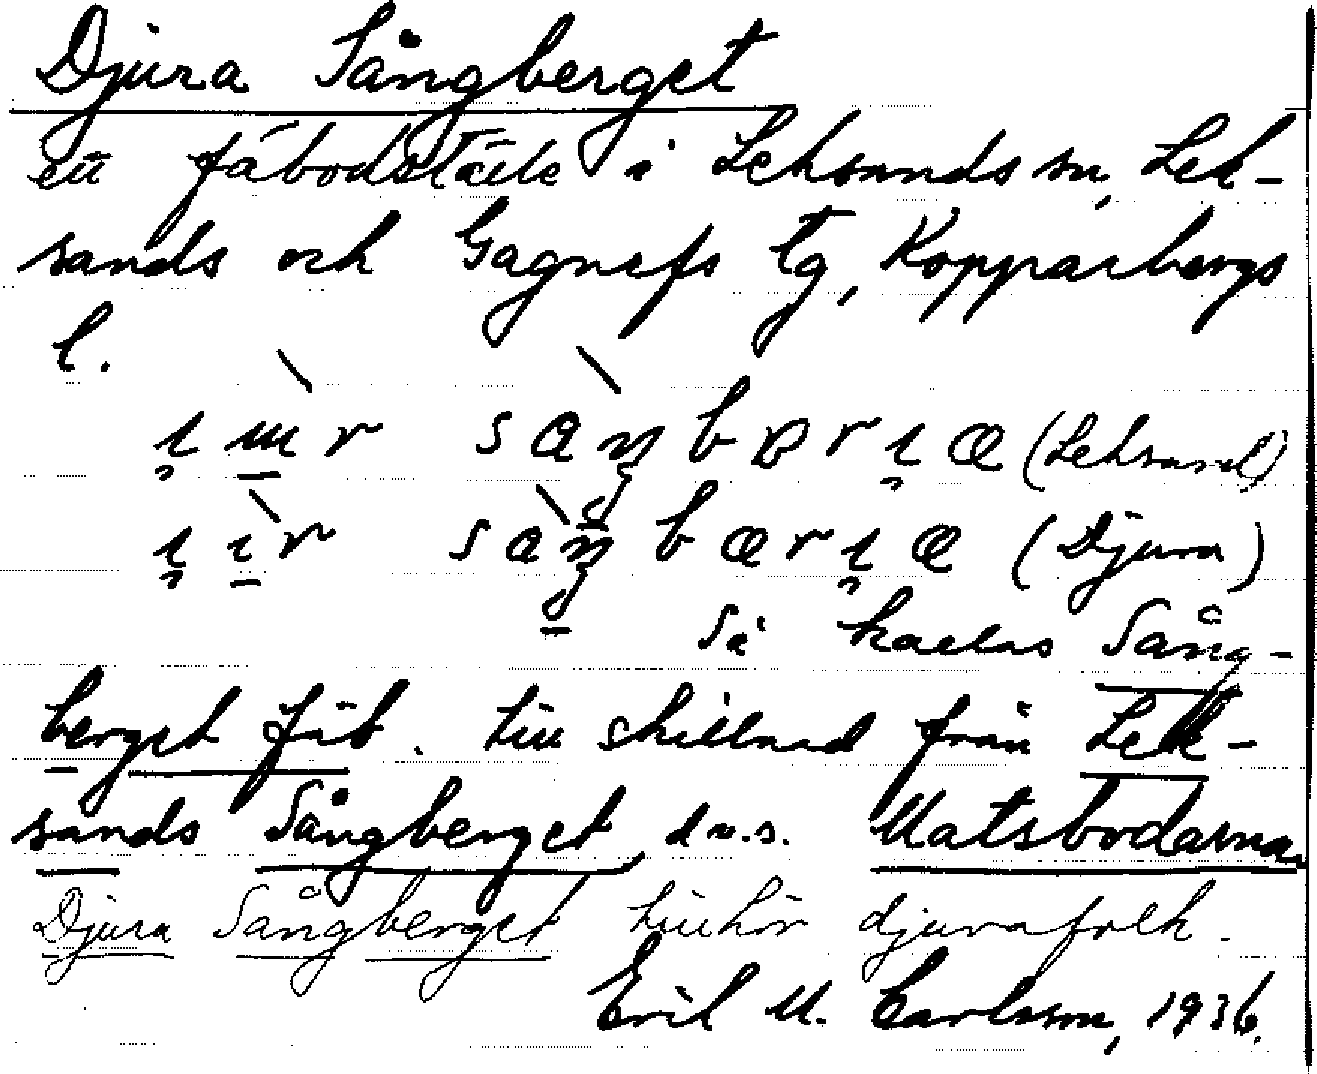 Djura Sångberget
ett fäbodställe i Leksands sn, Lek-
sands och Gagnefs tg, Kopparbergs
l.
(Leksand)
(Djura)
Så kallas Sång-
berget fäb. till skillnad från Lek-
sands Sångberget, d.v.s. Matsbodarna.
Djura Sångberget tillhör djurafolk.
Erik M. Carlsson, 1936.